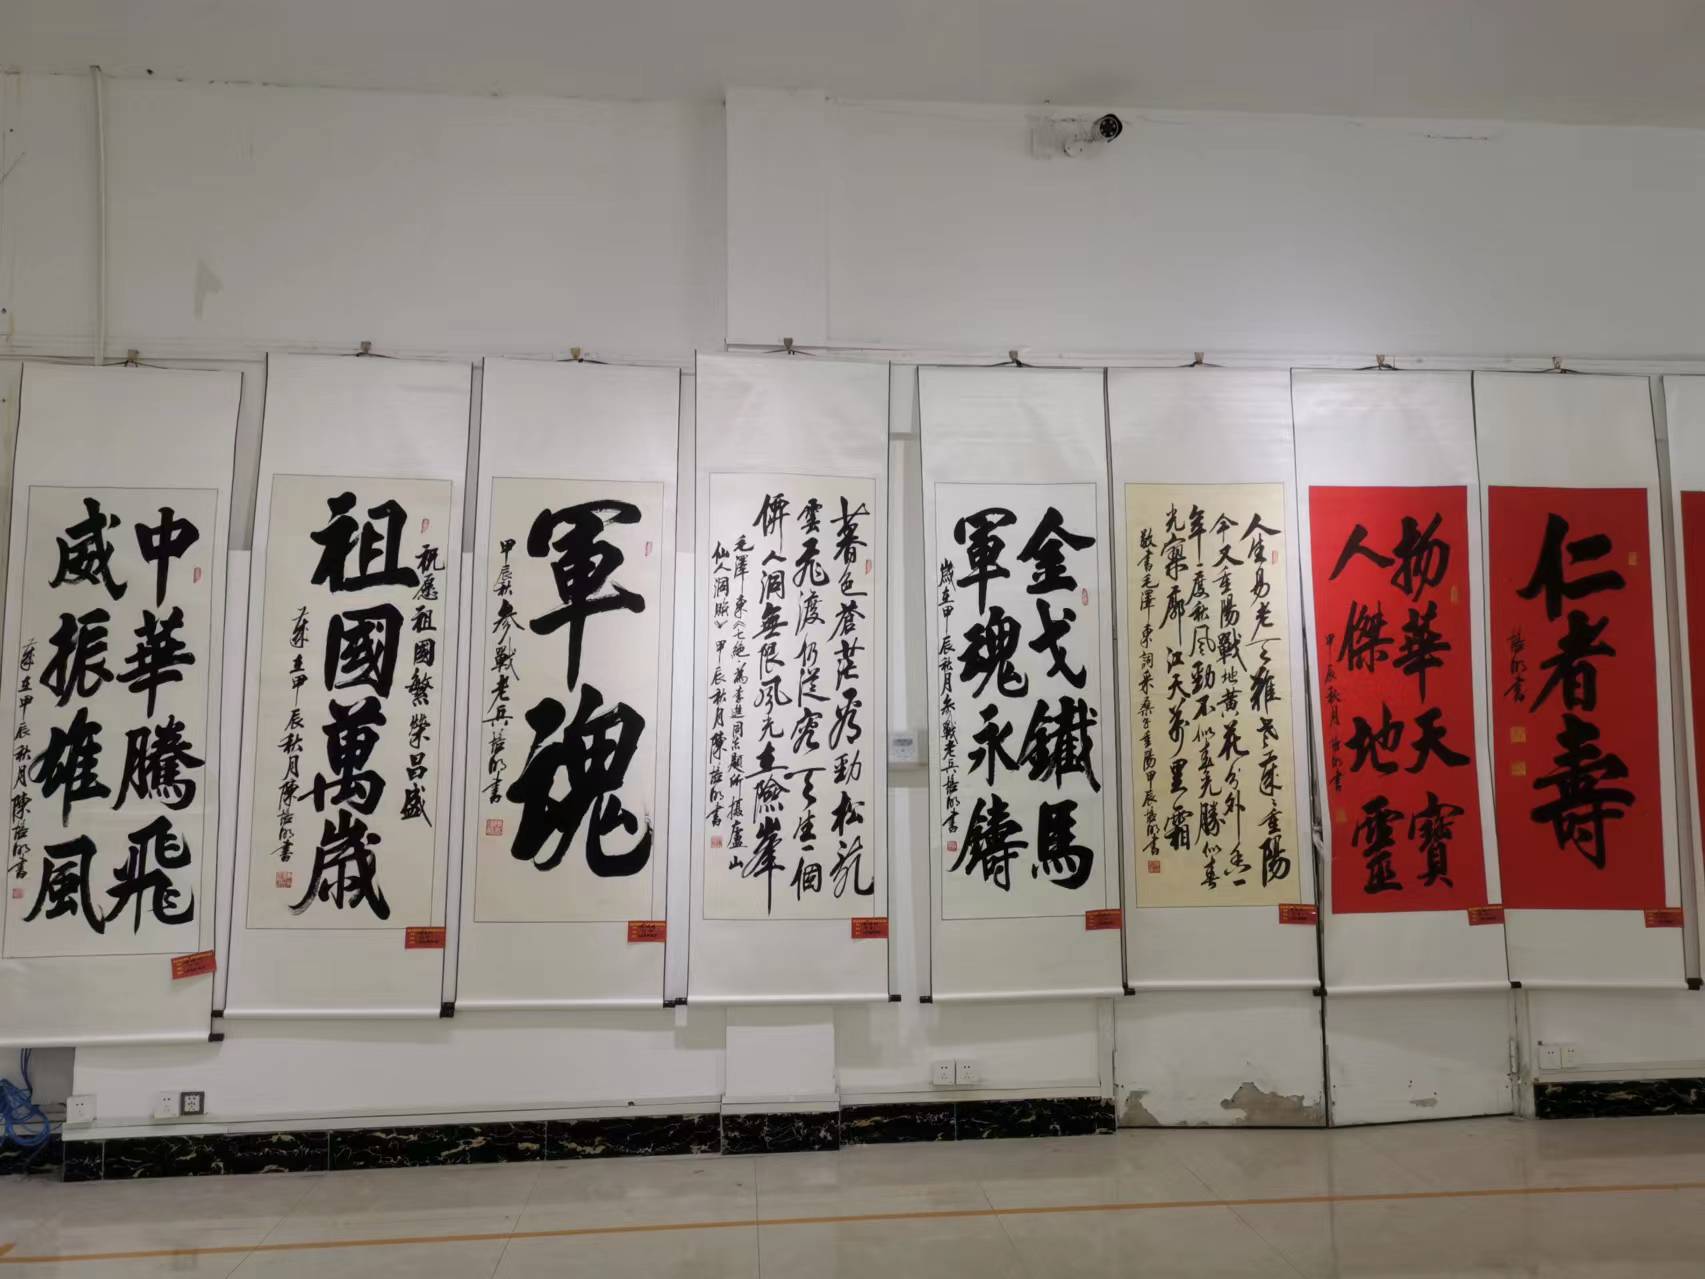 中華騰飛
威振雄風
歲在甲辰秋月陳
書
祝愿祖國繁榮昌盛
祖國萬歲
歲在甲辰秋月陳
書
軍魂
甲辰秋
參戰老兵
書
暮色蒼茫看勁松
亂雲飛渡仍從容
天生一個
仙人洞無限風光在險峯
毛澤東《七絕·為李進同志題所攝廬山
仙人洞照》甲辰秋月陳
書
金戈鐵馬
軍魂永鑄
歲在甲辰秋月參戰老兵
書
人生易老天難老歲歲重陽
今又重陽戰地黃花分外香一
年一度秋風勁不似春光勝似春
光寥廓江天萬里霜
敬書毛澤東詞采桑子重陽甲辰
書
物華天寶
人傑地靈
甲辰秋月
書
仁者壽
書